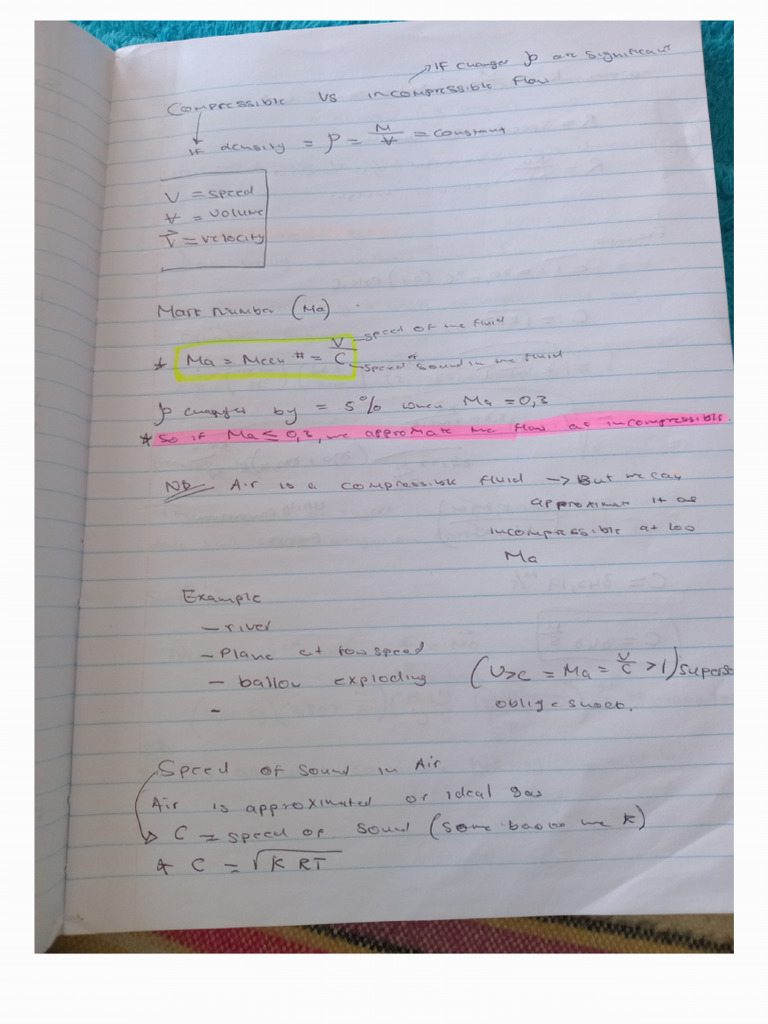 → IF changes ρ are significant
Compressible vs incompressible flow
↓
IF density = ρ = M/V̶ = constant
V = speed
V̶ = volume
V⃗ = velocity
Mark number (Ma)
* Ma = # = V/C
speed of the fluid
speed of sound in the fluid
ρ changes by = 5% when Ma = 0,3
* So if Ma ≤ 0,3, we the flow as incompressible.
NB Air is a compressible fluid → But we can
approximate it as
incompressible at
Ma
Example
- river
- Plane at low speed
- exploding (V>c = Ma = V/C >1)
-
Speed of sound in Air
Air is approximated or ideal gas
→ C = speed of sound (some the K)
* C = √KRT